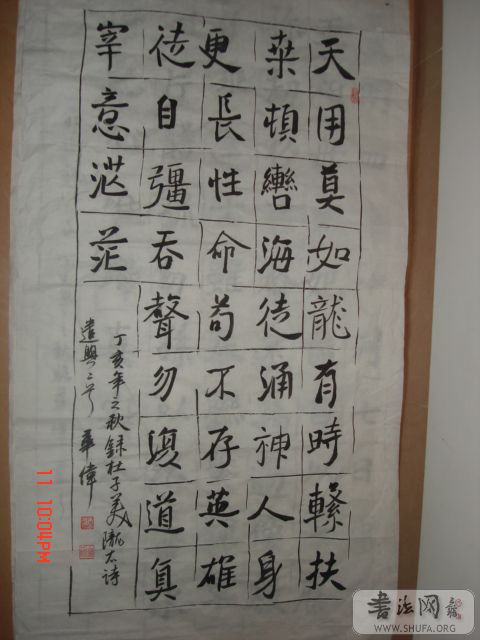 天用莫如龍有時繫扶
桒頓轡海徒涌神人身
更長性命苟不存英雄
徒自彊吞聲勿復道真
宰意茫茫
丁亥年之秋錄杜子美詩
遣興二首 華偉
11 10:04PM
書法网
WWW.SHUFA.ORG